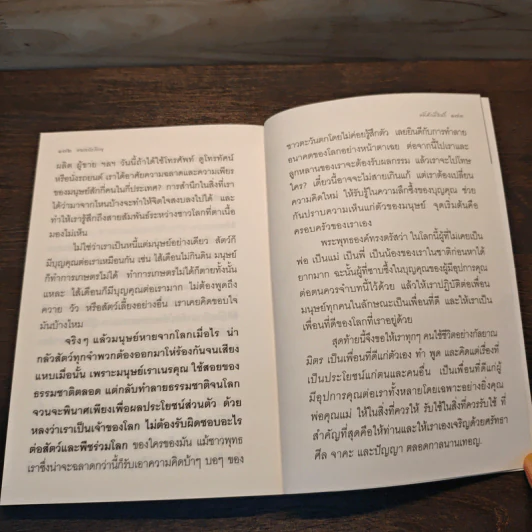 ผลิต ผู้ขาย ฯลฯ วันนี้ถ้าได้ใช้โทรศัพท์ ดูโทรทัศน์
หรือนั่งรถยนต์ เราได้อาศัยความฉลาดและความเพียร
ของมนุษย์สักกี่คนในกี่ประเทศ? การสำนึกในสิ่งที่เรา
ได้ว่ามาจากไหนบ้างจะทำให้จิตใจสงบลงไปได้ และ
ทำให้เรารู้สึกถึงสายสัมพันธ์ระหว่างชาวโลกที่ตาเนื้อ
มองไม่เห็น
ไม่ใช่ว่าเราเป็นหนี้แต่มนุษย์อย่างเดียว สัตว์ก็
มีบุญคุณต่อเราเหมือนกัน เช่น ไส้เดือนไม่กินดิน มนุษย์
ก็ทำการเกษตรไม่ได้ ทำการเกษตรไม่ได้ก็ตายทั้งนั้น
แหละ ไส้เดือนก็มีบุญคุณต่อเรามาก ไม่ต้องพูดถึง
ควาย วัว หรือสัตว์เลี้ยงอย่างอื่น เราเคยคิดขอบใจ
มันบ้างไหม
จริงๆ แล้วมนุษย์หายจากโลกเมื่อไร น่า
กลัวสัตว์ทุกจำพวกต้องออกมาโห่ร้องกันจนเสียง
แหบเมื่อนั้น เพราะมนุษย์เราเนรคุณ ใช้สอยของ
ธรรมชาติตลอด แต่กลับทำลายธรรมชาติจนโลก
จวนจะพินาศเพียงเพื่อผลประโยชน์ส่วนตัว ด้วย
หลงว่าเราเป็นเจ้าของโลก ไม่ต้องรับผิดชอบอะไร
ต่อสัตว์และพืชร่วมโลก ของใครของมัน แม้ชาวพุทธ
เราซึ่งน่าจะฉลาดกว่านี้ก็รับเอาความคิดบ้าๆ บอๆ ของ
ชาวตะวันตกโดยไม่ค่อยรู้สึกตัว เลยยินดีกับการทำลาย
อนาคตของโลกอย่างหน้าตาเฉย ต่อจากนี้ไปเราและ
ลูกหลานของเราจะต้องรับผลกรรม แล้วเราจะไปโทษ
ใคร? เดี๋ยวนี้อาจจะไม่สายเกินแก้ แต่เราต้องเปลี่ยน
ความคิดใหม่ ให้รับรู้ในความลึกซึ้งของบุญคุณ ช่วย
กันปราบความเห็นแก่ตัวของมนุษย์ จุดเริ่มต้นคือ
ครอบครัวของเราเอง
พระพุทธองค์ทรงตรัสว่า ในโลกนี้ผู้ที่ไม่เคยเป็น
พ่อ เป็นแม่ เป็นพี่ เป็นน้องของเราในชาติก่อนหาได้
ยากมาก ฉะนั้นผู้ที่ซาบซึ้งในบุญคุณของผู้มีอุปการคุณ
ต่อตนควรจำบทนี้ไว้ด้วย แล้วให้เราปฏิบัติต่อเพื่อน
มนุษย์ทุกคนในลักษณะเป็นเพื่อนที่ดี และให้เราเป็น
เพื่อนที่ดีของโลกที่เราอยู่ด้วย
สุดท้ายนี้จึงขอให้เราทุกๆ คนใช้ชีวิตอย่างกัลยาณ
มิตร เป็นเพื่อนที่ดีแก่ตัวเอง ทำ พูด และคิดแต่เรื่องที่
เป็นประโยชน์แก่ตนและคนอื่น เป็นเพื่อนที่ดีแก่ผู้
มีอุปการคุณต่อเราทั้งหลายโดยเฉพาะอย่างยิ่งคุณ
พ่อคุณแม่ ให้ในสิ่งที่ควรให้ รับใช้ในสิ่งที่ควรรับใช้ ที่
สำคัญที่สุดคือให้ท่านและให้เราเองเจริญด้วยศรัทธา
ศีล จาคะ และปัญญา ตลอดกาลนานเทอญ.